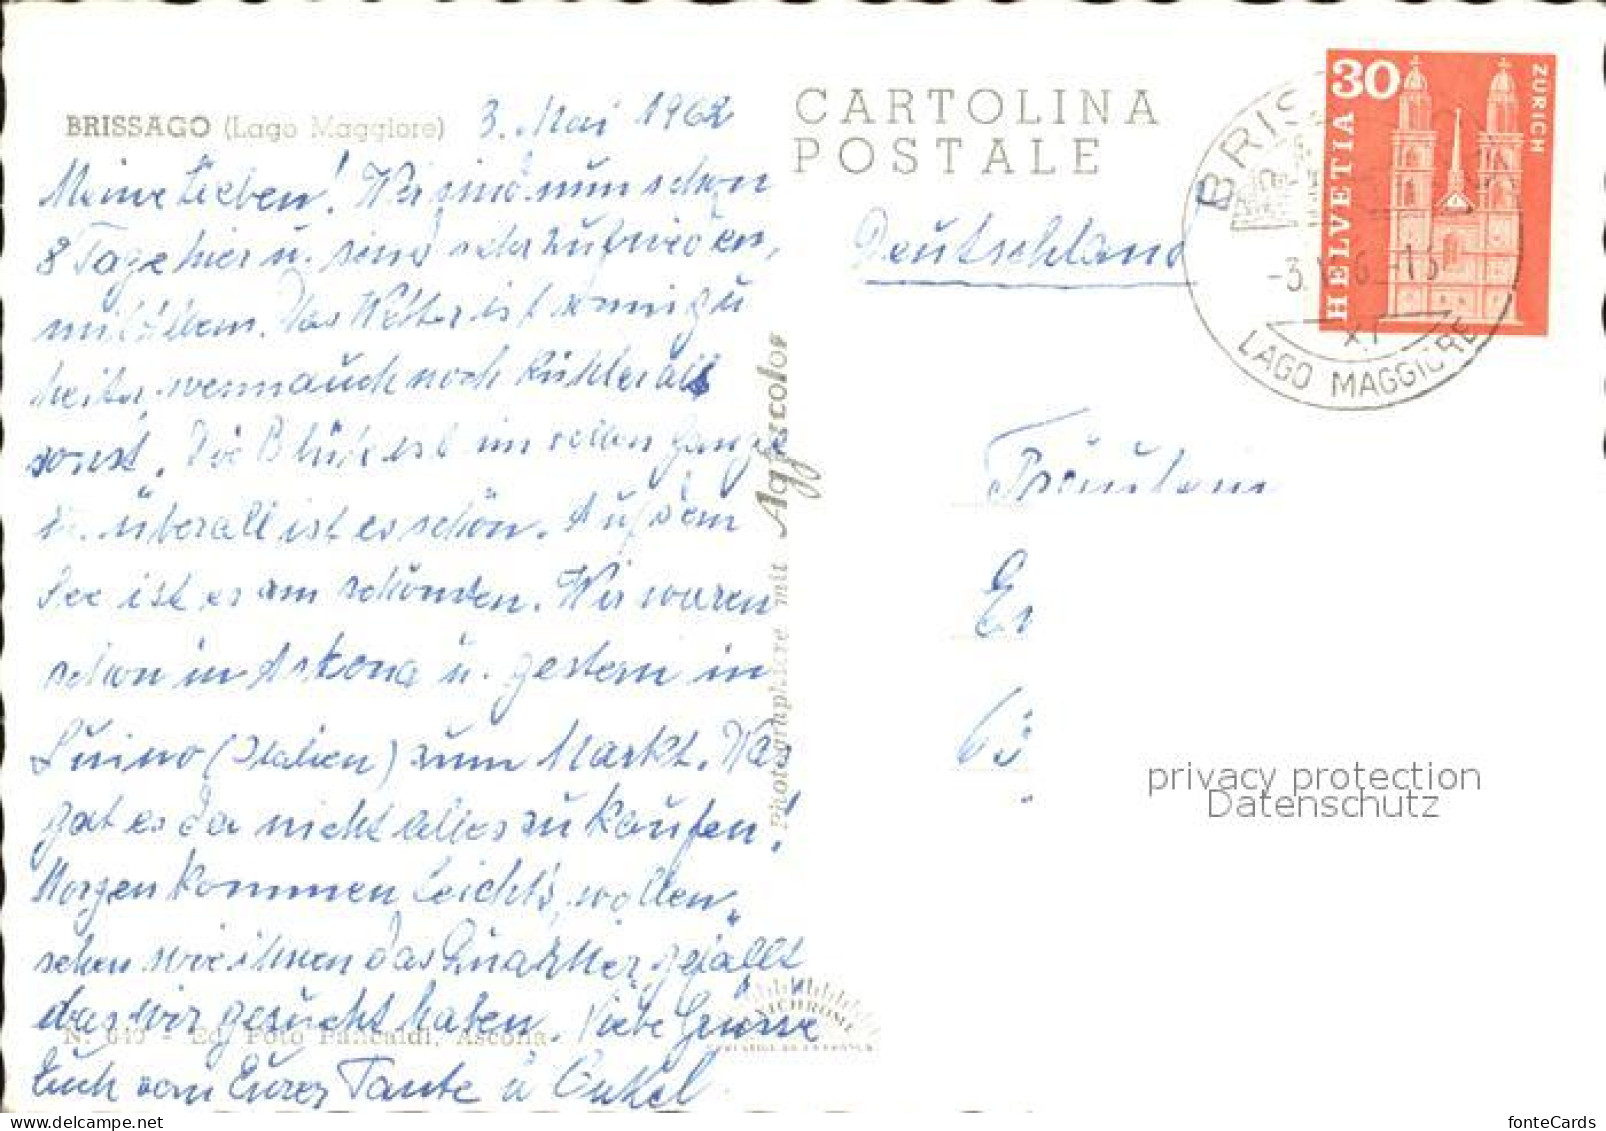 BRISSAGO (Lago Maggiore) 3. Mai 1962
Meine Lieben! Wir sind nun schon
8 Tage hier u. sind sehr zufrieden,
mit allem. Das Wetter ist sonnig u
heiter, wenn auch noch kühler als
sonst. Die Blüte ist im vollen Gange
u. überall ist es schön. Auf dem
See ist es am schönsten. Wir waren
schon in Askona u. gestern in
Luino (Italien) zum Markt. Was
gab es da nicht alles zu kaufen!
Morgen kommen wollen
sehen wie ihnen das Quartier gefällt
das wir gesucht haben. Viele Grüsse
Euch von Eurer Tante u Onkel
N. 645 - Ed. Foto Pancaldi, Ascona
Photographiere mit Agfacolor
CARTOLINA
POSTALE
Deutschland
Fräulein
30
HELVETIA
ZÜRICH
BRIS
LAGO MAGGIORE
privacy protection
Datenschutz
fonteCards